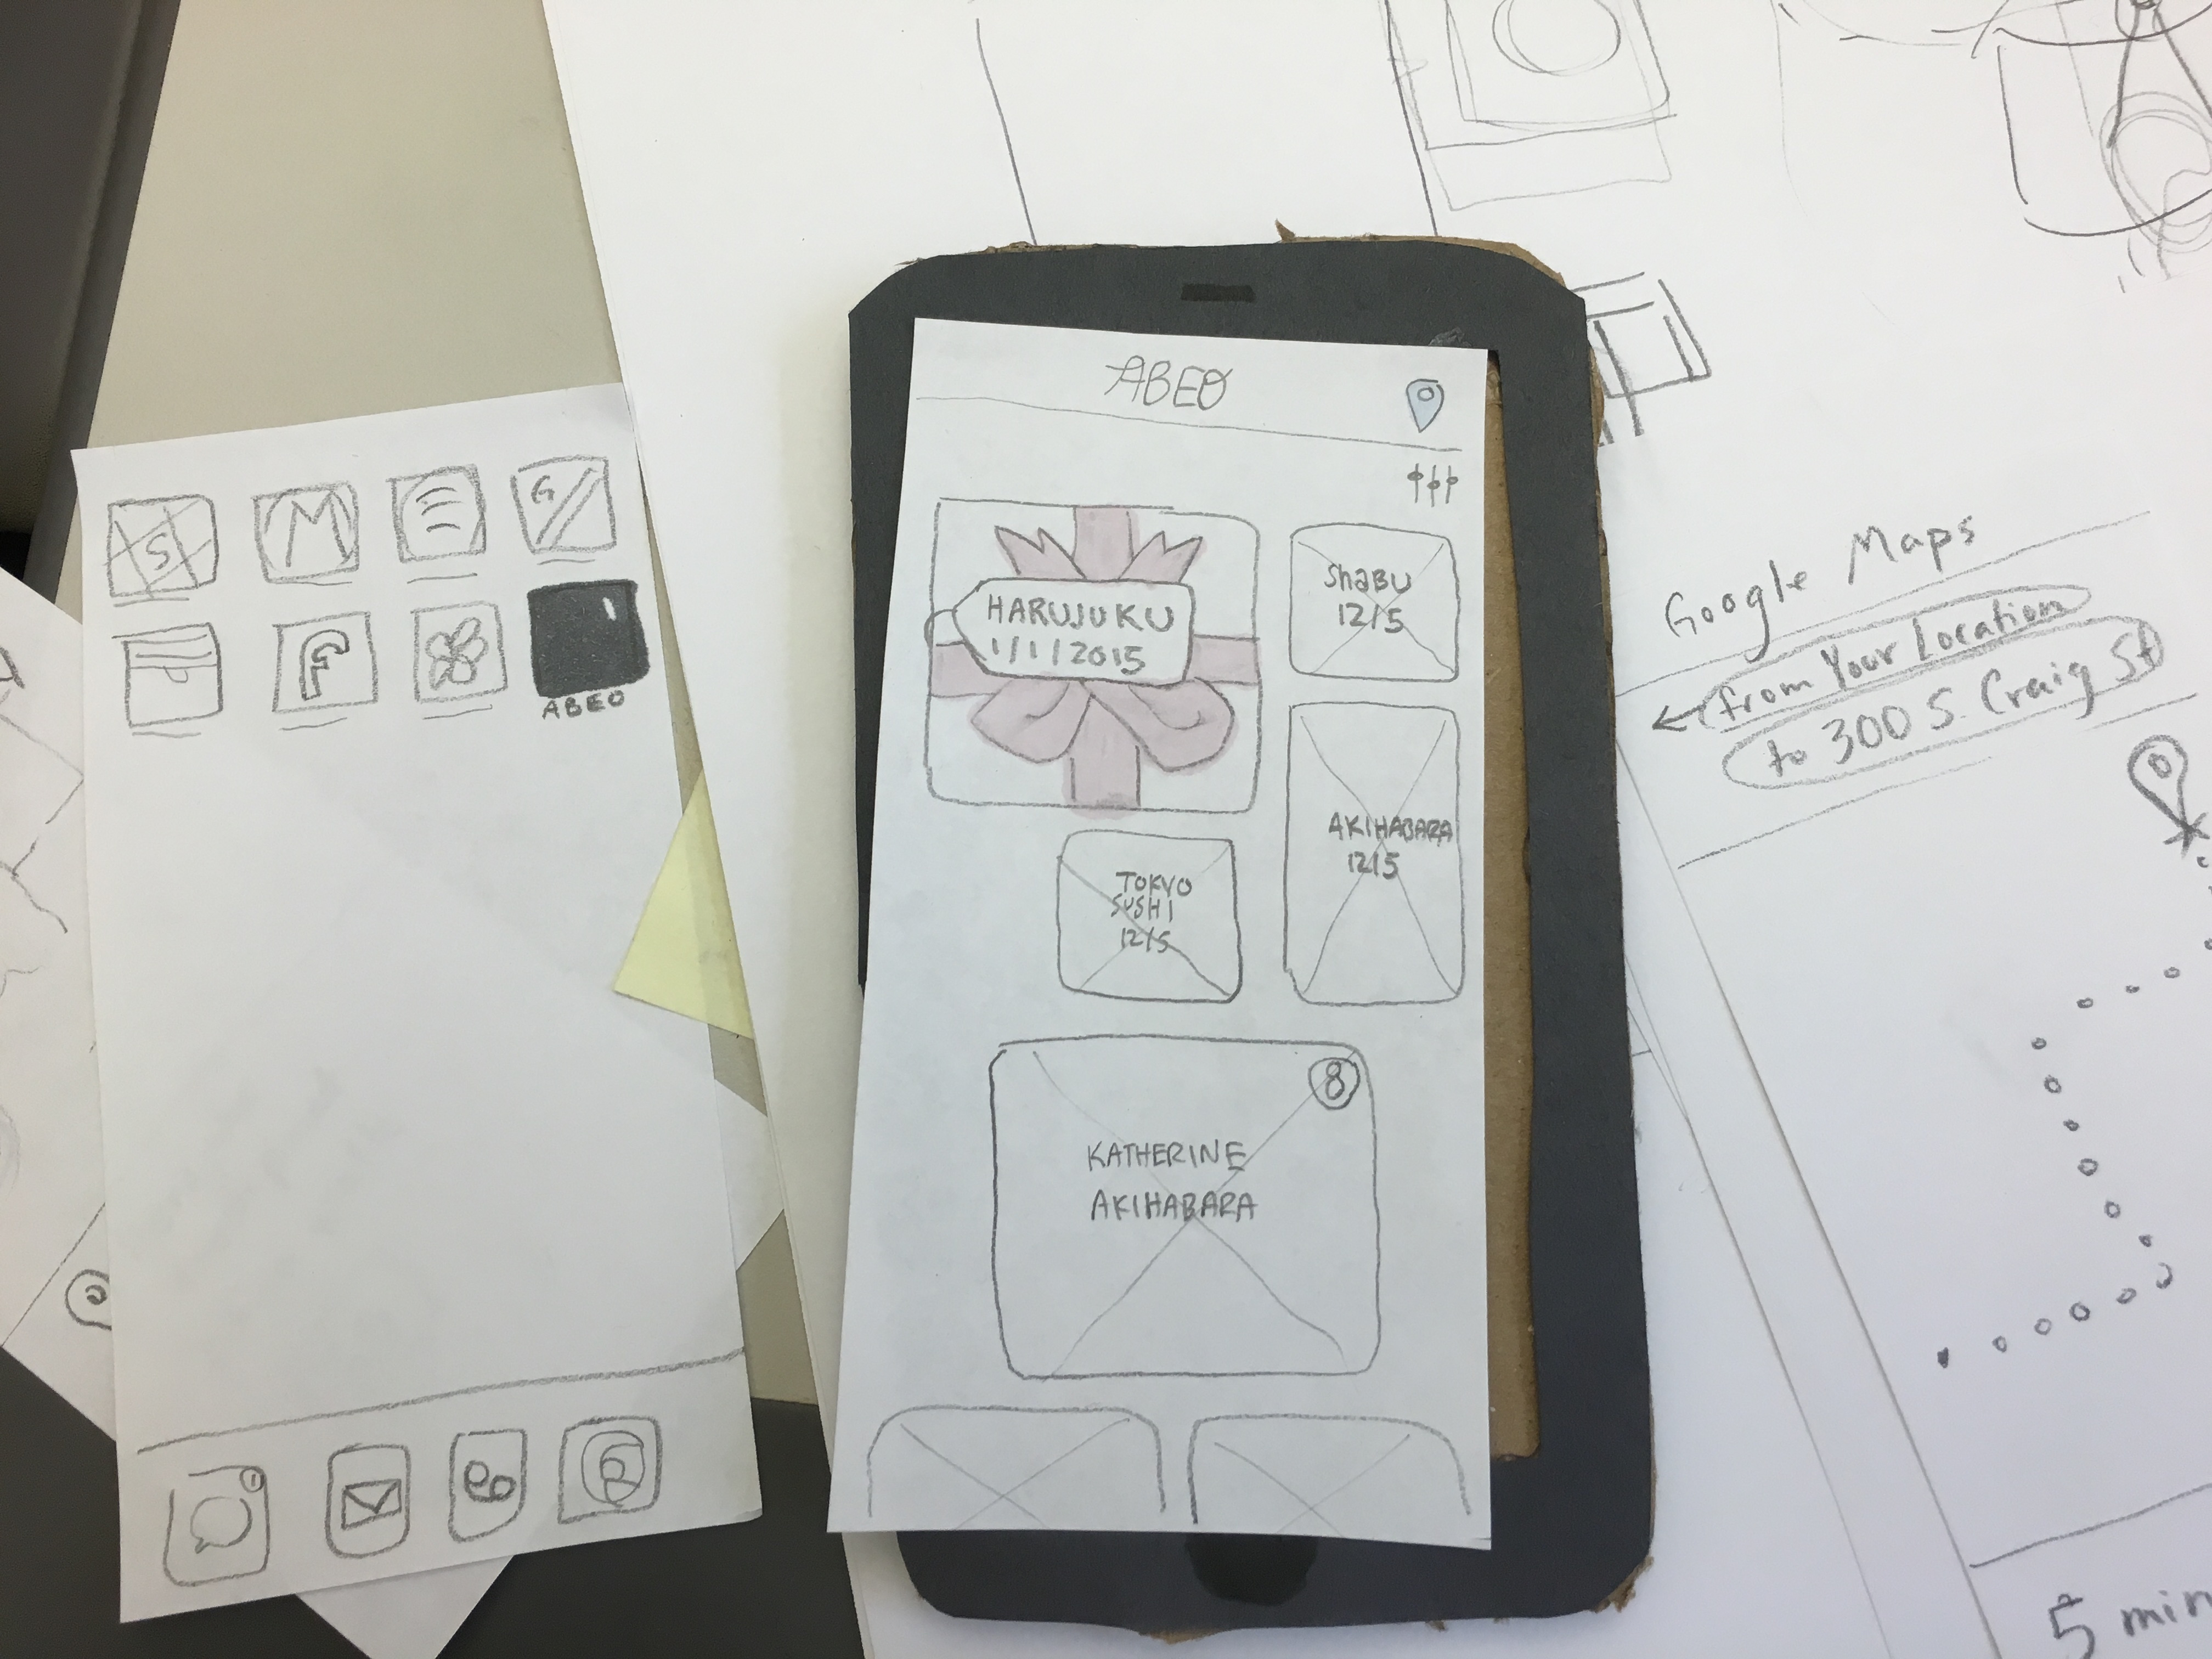 S
M
G
F
ABEO
ABEO
HARUJUKU
1/1/2015
ShABU
12/5
AKIHABARA
12/5
TOKYO
SUSHI
12/5
8
KATHERINE
AKIHABARA
Google Maps
from Your Location
to 300 S. Craig St
5 min